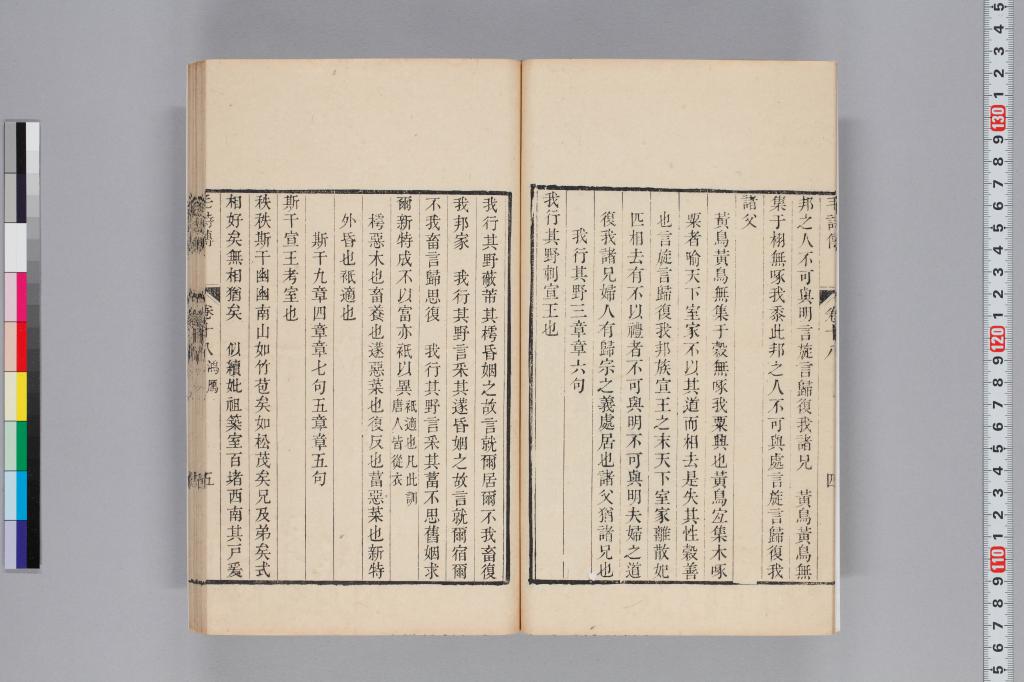 毛詩傳 卷十八 四
邦之人不可與明言旋言歸復我諸兄 黃鳥黃鳥無
集于栩無啄我黍此邦之人不可與處言旋言歸復我
諸父
黃鳥黃鳥無集于穀無啄我粟興也黃鳥宜集木啄
粟者喻天下室家不以其道而相去是失其性穀善
也言旋言歸復我邦族宣王之末天下室家離散妃
匹相去有不以禮者不可與明不可與明夫婦之道
復我諸兄婦人有歸宗之義處居也諸父猶諸兄也
我行其野三章章六句
我行其野刺宣王也
我行其野蔽芾其樗昏姻之故言就爾居爾不我畜復
我邦家 我行其野言采其蓫昏姻之故言就爾宿爾
不我畜言歸思復 我行其野言采其葍不思舊姻求
爾新特成不以富亦祇以異祇適也凡此訓
唐人皆從衣
樗惡木也畜養也蓫惡菜也復反也葍惡菜也新特
外昏也祇適也
斯干九章四章章七句五章章五句
斯干宣王考室也
秩秩斯干幽幽南山如竹苞矣如松茂矣兄及弟矣式
相好矣無相猶矣 似續妣祖築室百堵西南其戶爰
毛詩傳 卷十八 鴻鴈 五